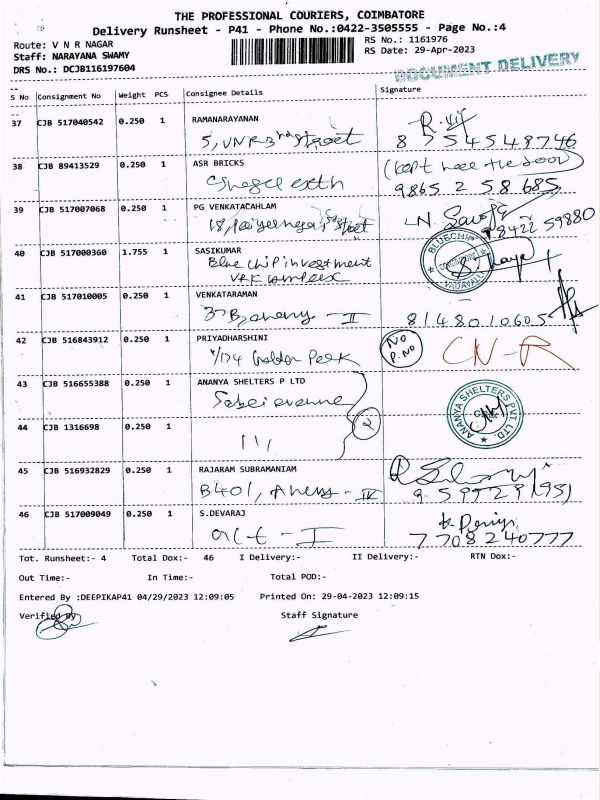 THE PROFESSIONAL COURIERS, COIMBATORE
Delivery Runsheet - P41 - Phone No.:0422-3505555 - Page No.:4
Route: V N R NAGAR
RS No.: 1161976
Staff: NARAYANA SWAMY
RS Date: 29-Apr-2023
DRS No.: DCJB116197604
DOCUMENT DELIVERY
S No Consignment No Weight PCS Consignee Details Signature
37 CJB 517040542 0.250 1 RAMANARAYANAN
5, VNR 3rd street 8754549746
38 CJB 89413529 0.250 1 ASR BRICKS
9865258685
39 CJB 517007068 0.250 1 PG VENKATACAHLAM
18, street 98422 59880
40 CJB 517000360 1.755 1 SASIKUMAR
Blue chip investment
VRK complex
BLUECHIP
41 CJB 517010005 0.250 1 VENKATARAMAN
II 8148010605
42 CJB 516843912 0.250 1 PRIYADHARSHINI
NO P.NO
Golden Park CN-R
43 CJB 516655388 0.250 1 ANANYA SHELTERS P LTD
avenue
2
ANANYA SHELTERS PVT. LTD.
44 CJB 1316698 0.250 1
45 CJB 516932829 0.250 1 RAJARAM SUBRAMANIAM
B401, IV
46 CJB 517009049 0.250 1 S.DEVARAJ
I 7708240777
Tot. Runsheet:- 4 Total Dox:- 46 I Delivery:- II Delivery:- RTN Dox:-
Out Time:- In Time:- Total POD:-
Entered By :DEEPIKAP41 04/29/2023 12:09:05 Printed On: 29-04-2023 12:09:15
Verified By Staff Signature